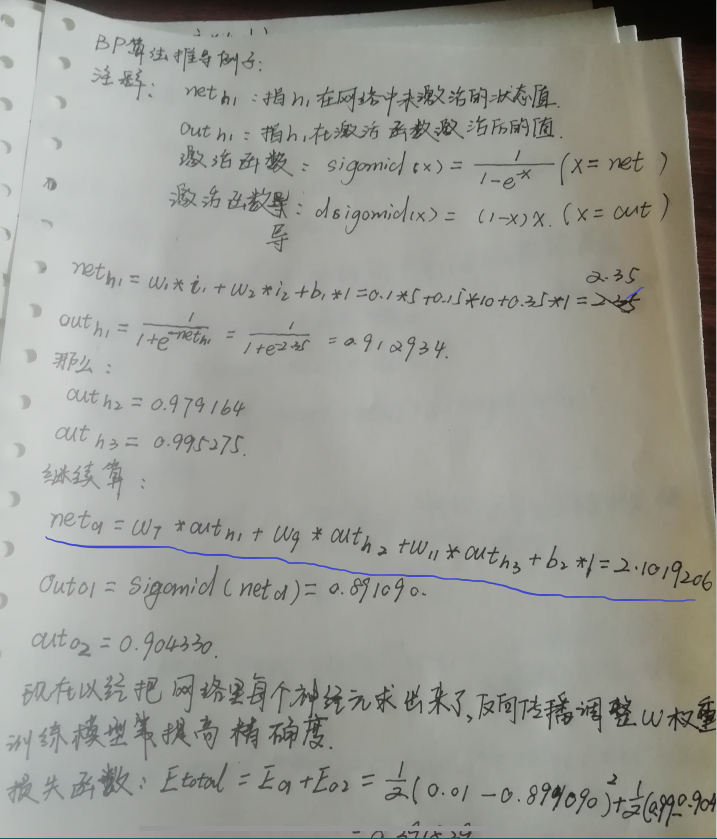 BP算法推导例子:
注释: net h1 : 指h1在网络中未激活的状态值.
out h1 : 指h1在激活函数激活后的值.
激活函数: sigomid(x) = 1/(1-e^-x) (x = net)
激活函数导: dsigomid(x) = (1-x)x. (x = out)
导
2.35
net h1 = w1*i1 + w2*i2 + b1*1 = 0.1*5+0.15*10+0.35*1 =
out h1 = 1/(1+e^-net h1) = 1/(1+e^-2.35) = 0.912934.
那么:
out h2 = 0.979164
out h3 = 0.995275.
继续算:
net o1 = w7 *out h1 + w9 * out h2 + w11 *out h3 + b2 *1 = 2.1019206
outo1 = Sigomid(neto1) = 0.891090.
outo2 = 0.904330.
现在以经把网络里每个神经元求出来了,反向传播调整W权重
训练模型等提高精确度.
损失函数: Etotal = Eo1 + Eo2 = 1/2(0.01 - 0.891090)^2 + 1/2(0.99-0.904